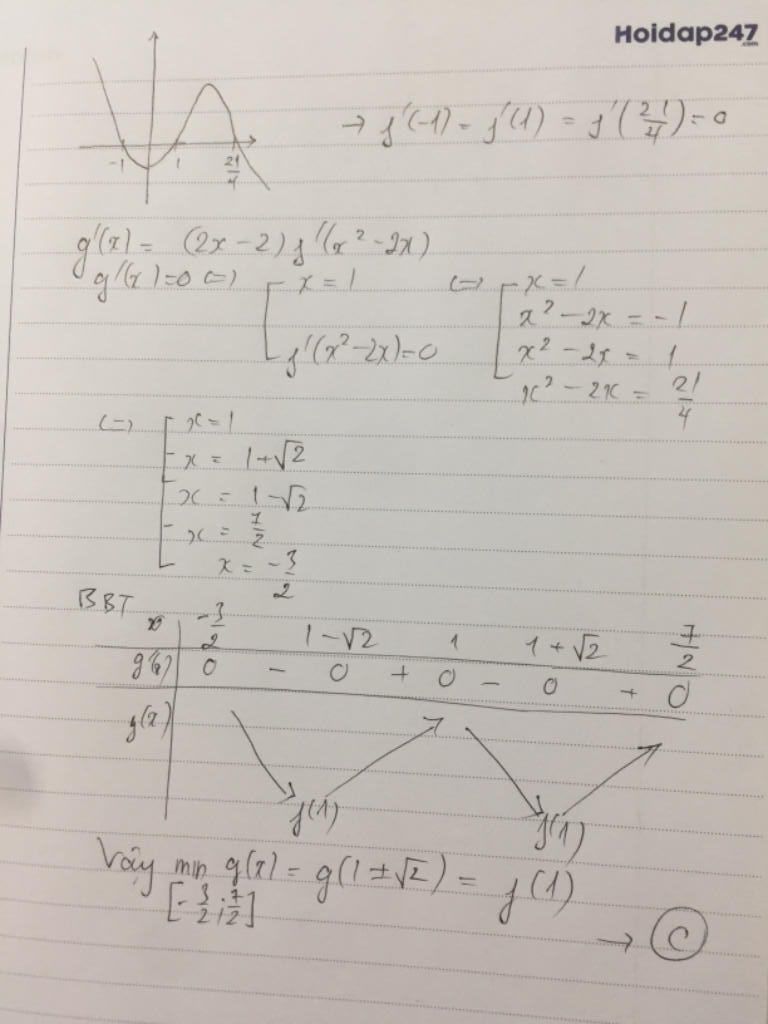 Hoidap247
.com
-1 1 21/4
→ f'(-1) = f'(1) = f'(21/4) = 0
g'(x) = (2x-2) f'(x² - 2x)
g'(x) = 0 <=> [ x = 1 <=> [ x = 1
x² - 2x = -1
f'(x² - 2x) = 0 x² - 2x = 1
x² - 2x = 21/4
<=> [ x = 1
x = 1 + √2
x = 1 - √2
x = 7/2
x = -3/2
BBT
x -3/2 1 - √2 1 1 + √2 7/2
g'(x) 0 - 0 + 0 - 0 + 0
g(x)
f(1) f(1)
Vậy min g(x) = g(1 ± √2) = f(1)
[-3/2; 7/2]
→ C